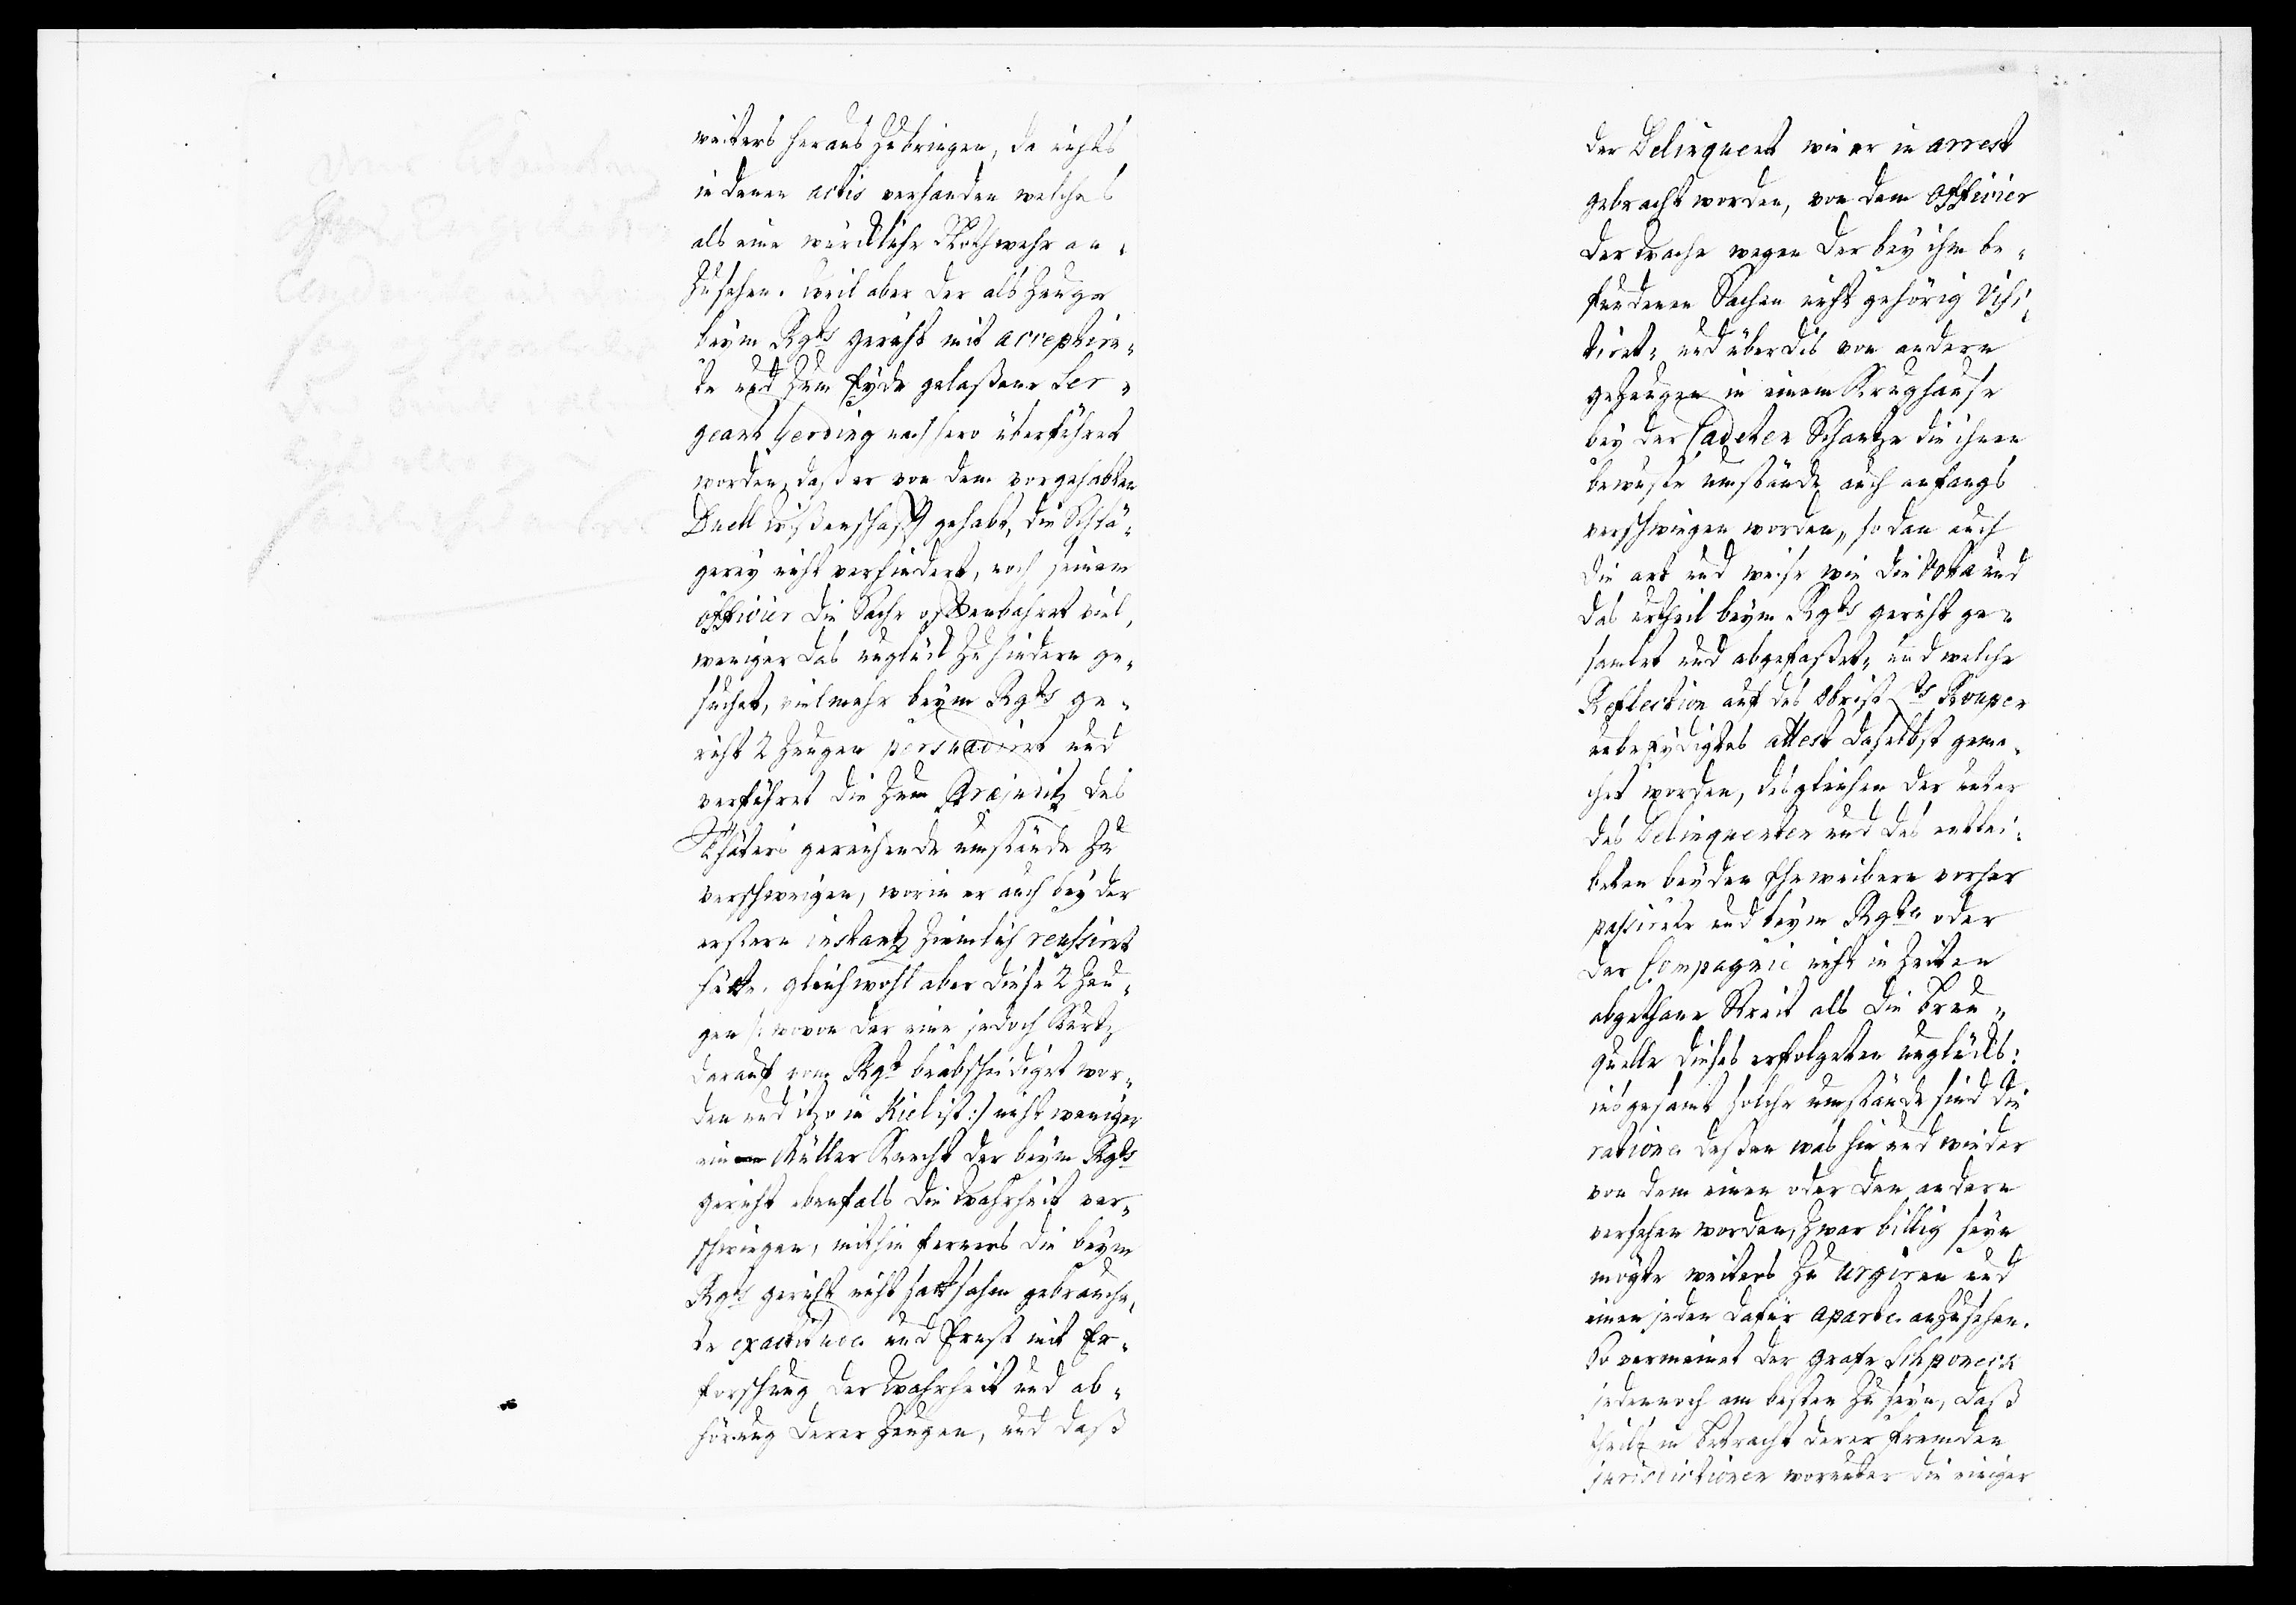 weiters heraus zubringen, da nichts
in denen actis verhanden welches
als eine würckliche Nothwehr an-
zusehen. weil aber der als Zeuge
beym Rgts gericht mit acceptire-
te und zum Eyde gelaßene Ser-
geant Gerding nachhero überführet
worden, daß er von dem vorgehabten
Duell wißenschafft gehabt, die Schlä-
gerey nicht verhindert, noch seinem
officier die Sache offenbahret viel
weniger das unglück zu hindern ge-
suchet, vielmehr beym Rgts ge-
richt 2 Zeugen persuadiret und
verführet die zum Præjuditz des
Thäters gereichende umstände zu
verschweigen, worin er auch bey der
ersten instantz ziemlich reussiret
hätte. gleichwohl aber diese 2 Zeu-
gen /: wovon der eine jedoch kurtz
darauf vom Rgt beabscheidiget wor-
den und itzo in Kiel ist :/ nicht weniger
ein Müller Knecht der beym Rgts
gericht ebenfals die Wahrheit ver-
schwiegen, mithin ferners die beym
Rgts gericht nicht sattsahm gebrauch-
te exactitude und Ernst mit Er-
forschung der Wahrheit und ab-
hörung derer Zeugen, und daß
der Delinquent wie er in arrest
gebracht worden, von dem officier
der Wache wegen der bey ihm be-
fundenen Sachen nicht gehörig visi-
tiret, und überdis von andern
gezeugen in einem Krughause
bey der Cadeten Schantze die ihnen
bewuste umstände auch anfangs
verschwiegen worden, so dan auch
die art und weise wie die Vota und
das urtheil beym Rgts gericht ge-
samlet und abgefaßet, und welche
Reflection auf des Obrist Lts
unbeeydigtes attest daselbst gema-
chet worden, desgleichen der unter
des Delinquenten und des entlei-
beten beyden Eheweibern vorher
passirete und beym Rgte oder
der Compagnie nicht in Zeiten
abgethane Streit als die Brun-
quelle dieses erfolgeten unglücks:
insgesamt solche umstände sind die
ratione deßen was hin und wieder
von dem einen oder den andern
versehen worden, zwar billig seyn
mögte weiters zu urgiren und
einen jeden dafür aparte anzusehen.
So vermeinet der Grafe Schponeck
jedennoch am besten zu seyn, daß
theils in Betracht derer fremden
jurisdictionen worunter die einiger